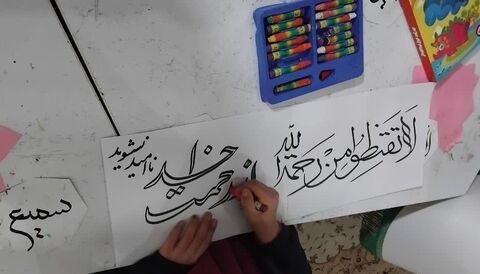 لا تقنطوا من رحمة الله
از رحمت خدا
ناامید نشوید
سمیع